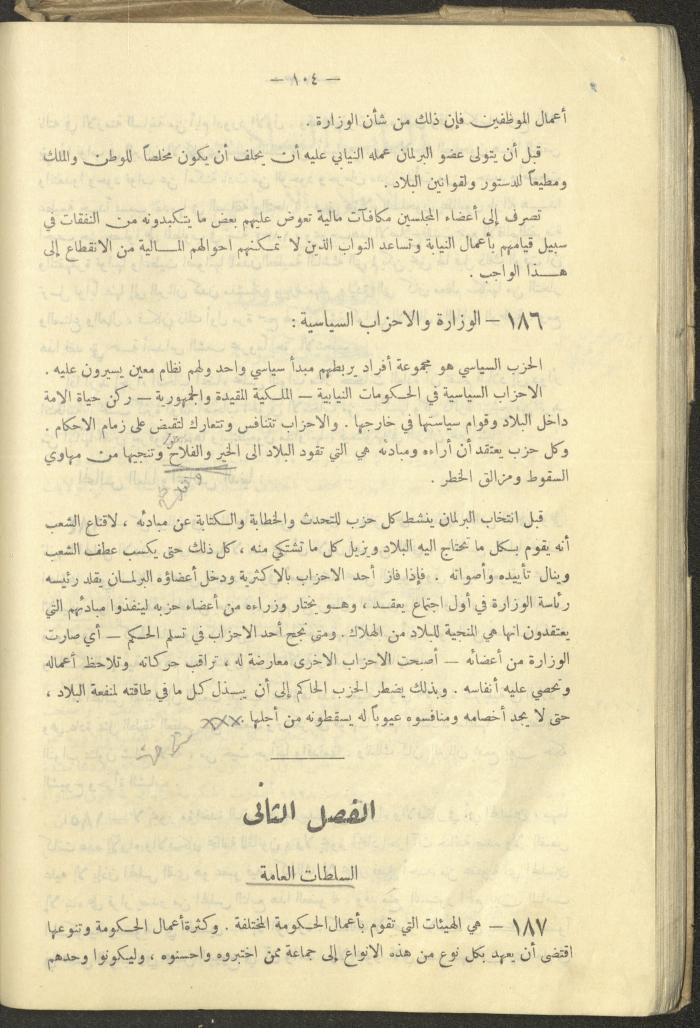 — ١٠٤ —
أعمال الموظفين فإن ذلك من شأن الوزارة .
قبل أن يتولى عضو البرلمان عمله النيابي عليه أن يحلف أن يكون مخلصاً للوطن والملك
ومطيعاً للدستور ولقوانين البلاد .
تصرف إلى أعضاء المجلسين مكافآت مالية تعوض عليهم بعض ما يتكبدونه من النفقات في
سبيل قيامهم بأعمال النيابة وتساعد النواب الذين لا تمكنهم احوالهم المالية من الانقطاع إلى
هذا الواجب .
١٨٦ — الوزارة والاحزاب السياسية :
الحزب السياسي هو مجموعة أفراد يربطهم مبدأ سياسي واحد ولهم نظام معين يسيرون عليه .
الاحزاب السياسية في الحكومات النيابية — الملكية المقيدة والجمهورية — ركن حياة الامة
داخل البلاد وقوام سياستها في خارجها . والاحزاب تتنافس وتتعارك لتقبض على زمام الاحكام .
وكل حزب يعتقد أن أراءه ومبادئه هي التي تقود البلاد الى الخير والفلاح وتنجيها من مهاوي
السقوط ومزالق الخطر .
قبل انتخاب البرلمان ينشط كل حزب للتحدث والخطابة والكتابة عن مبادئه ، لاقناع الشعب
أنه يقوم بكل ما تحتاج اليه البلاد ويزيل كل ما تشتكي منه ، كل ذلك حتى يكسب عطف الشعب
وينال تأييده وأصواته . فإذا فاز أحد الاحزاب بالاكثرية ودخل أعضاؤه البرلمان يقلد رئيسه
رئاسة الوزارة في أول اجتماع يعقد ، وهو يختار وزراءه من أعضاء حزبه لينفذوا مبادئهم التي
يعتقدون انها هي المنجية للبلاد من الهلاك . ومتى نجح أحد الاحزاب في تسلم الحكم — أي صارت
الوزارة من أعضائه — أصبحت الاحزاب الاخرى معارضة له ، تراقب حركاته وتلاحظ أعماله
وتحصي عليه أنفاسه . وبذلك يضطر الحزب الحاكم إلى أن يبذل كل ما في طاقته لمنفعة البلاد ،
حتى لا يجد أخصامه ومنافسوه عيوباً له يسقطونه من أجلها xxx
الفصل الثاني
السلطات العامة
١٨٧ — هي الهيئات التي تقوم بأعمال الحكومة المختلفة . وكثرة أعمال الحكومة وتنوعها
اقتضى أن يعهد بكل نوع من هذه الانواع إلى جماعة ممن اختبروه واحسنوه ، وليكونوا وحدهم